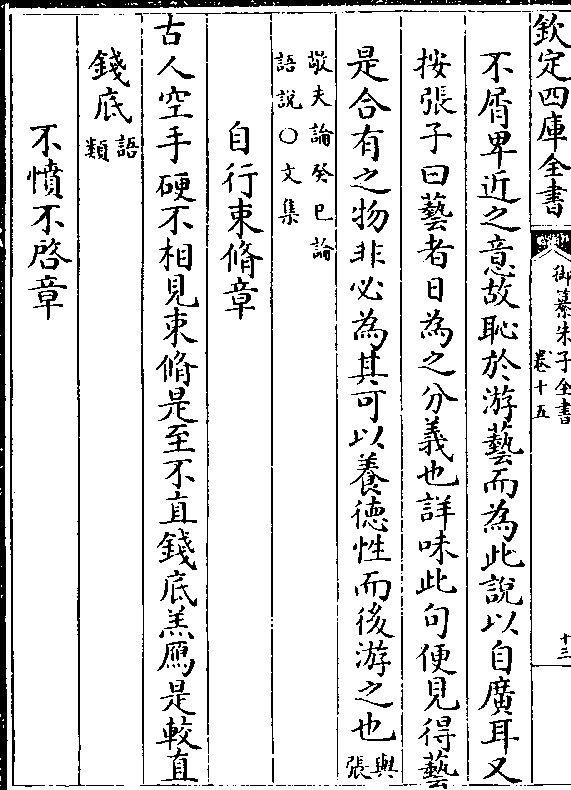 欽定四庫全書
御纂朱子全書
卷十五
十三
不屑卑近之意故恥於游藝而為此說以自廣耳又
按張子曰藝者日為之分義也詳味此句便見得藝
是合有之物非必為其可以養德性而後游之也與張
敬夫論癸巳論
語說〇文集
自行束脩章
古人空手硬不相見束脩是至不直錢底羔鴈是較直
錢底語類
不憤不啓章